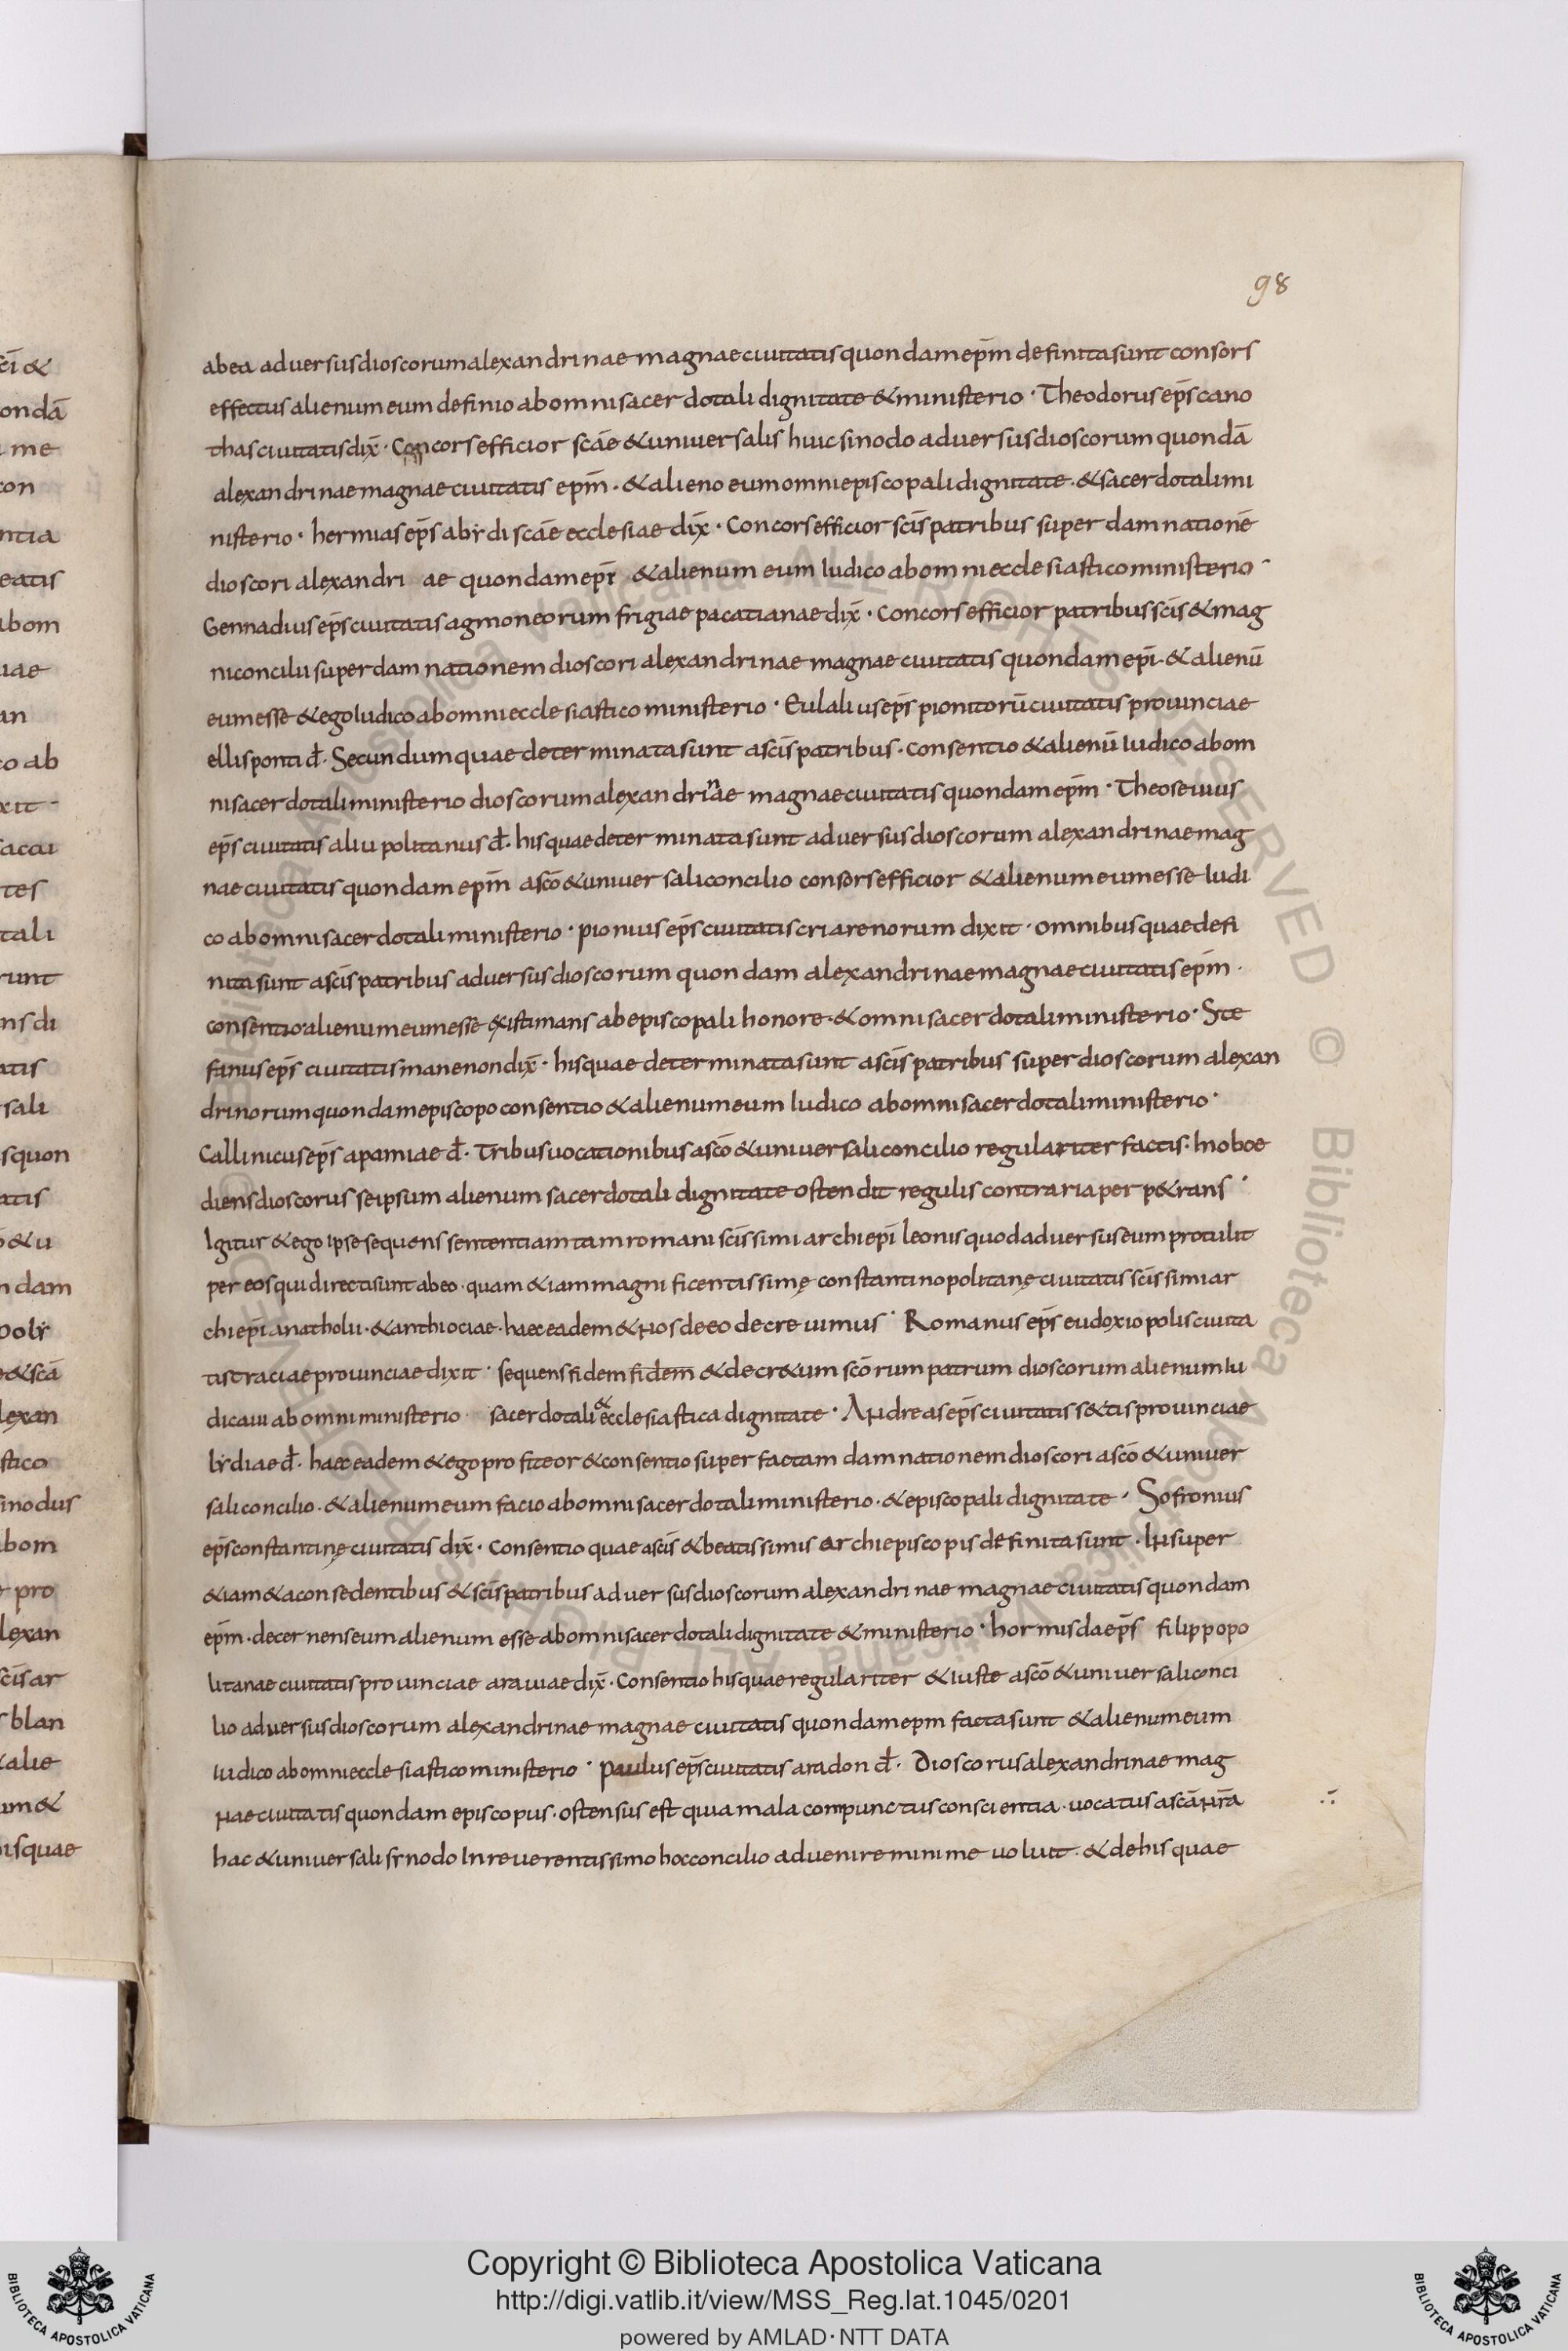 98
ab ea adversus dioscorum alexandrinae magnae civitatis quondam ep̄m definita sunt consors
effectus alienum eum definio ab omni sacerdotali dignitate & ministerio · Theodorus ep̄s cano
thas civitatis dix̄ · Concors efficior scāe & universalis huic sinodo adversus dioscorum quondā
alexandrinae magnae civitatis ep̄m · & alieno eum omni episcopali dignitate · & sacerdotali mi
nisterio · hermias ep̄s abẏdi scāe ecclesiae dix̄ · Concors efficior scīs patribus super damnationē
dioscori alexandri ae quondam ep̄i & alienum eum Iudico ab omni ecclesiastico ministerio ·
Gennadius ep̄s civitatis agmoneorum frigiae pacatianae dix̄ · Concors efficior patribus scīs & mag
ni concilii super damnationem dioscori alexandrinae magnae civitatis quondam ep̄i · & alienū
eum esse & ego Iudico ab omni ecclesiastico ministerio · Eulalius ep̄s pionitorū civitatis provinciae
ellisponti đ · Secundum quae determinata sunt a scīs patribus · Consentio & alienū Iudico ab om
ni sacerdotali ministerio dioscorum alexandrinae magnae civitatis quondam ep̄m · Theoseivus
ep̄s civitatis aliu politanus đ · his quae determinata sunt adversus dioscorum alexandrinae mag
nae civitatis quondam ep̄m a scō & universali concilio consors efficior & alienum eum esse Iudi
co ab omni sacerdotali ministerio · pionius ep̄s civitatis criarenorum dixit · omnibus quae defi
nita sunt a scīs patribus adversus dioscorum quondam alexandrinae magnae civitatis ep̄m ·
consentio · alienum eum esse existimans ab episcopali honore · & omni sacerdotali ministerio · Ste
fanus ep̄s civitatis manenon dix̄ · his quae determinata sunt a scīs patribus super dioscorum alexan
drinorum quondam episcopo consentio & alienum eum Iudico ab omni sacerdotali ministerio ·
Callinicus ep̄s apamiae đ · Tribus vocationibus a scō & universali concilio regulariter factis · Inoboe
diens dioscorus se ipsum alienum sacerdotali dignitate ostendit regulis contraria perp&rans ·
Igitur & ego ipse sequens sententiam tam romani scīssimi archiep̄i leonis quod adversus eum protulit
per eos qui directi sunt ab eo · quam &iam magnificentissimę constantinopolitanę civitatis scīssimi ar
chiep̄i anatholii · & anthiociae · haec eadem & nos de eo decrevimus · Romanus ep̄s eudoxiopolis civita
tis traciae provinciae dixit · sequens fidem fidem & decr&um scōrum patrum dioscorum alienum Iu
dicavi ab omni ministerio sacerdotali & ecclesiastica dignitate · Andreas ep̄s civitatis s&tis provinciae
lẏdiae đ · haec eadem & ego profiteor & consentio super factam damnationem dioscori a scō & univer
sali concilio · & alienum eum facio ab omni sacerdotali ministerio · & episcopali dignitate · Sofronius
ep̄s constantinę civitatis dix̄ · Consentio quae a scīs & beatissimis archiepiscopis definita sunt · Insuper
&iam & a consedentibus & scīs patribus adversus dioscorum alexandrinae magnae civitatis quondam
ep̄m · decernens eum alienum esse ab omni sacerdotali dignitate & ministerio · hormisda ep̄s filippopo
litanae civitatis provinciae araviae dix̄ · Consentio his quae regulariter & iuste a scō & universali conci
lio adversus dioscorum alexandrinae magnae civitatis quondam epm facta sunt & alienum eum
iudico ab omni ecclesiastico ministerio · paulus ep̄s civitatis aradon đ · Dioscorus alexandrinae mag
nae civitatis quondam episcopus · ostensus est quia mala compunctus conscientia · vocatus a scā nr̄a
hac & universali sẏnodo In reverentissimo hoc concilio advenire minime voluit · & de his quae
Copyright © Biblioteca Apostolica Vaticana
http://digi.vatlib.it/view/MSS_Reg.lat.1045/0201
powered by AMLAD · NTT DATA